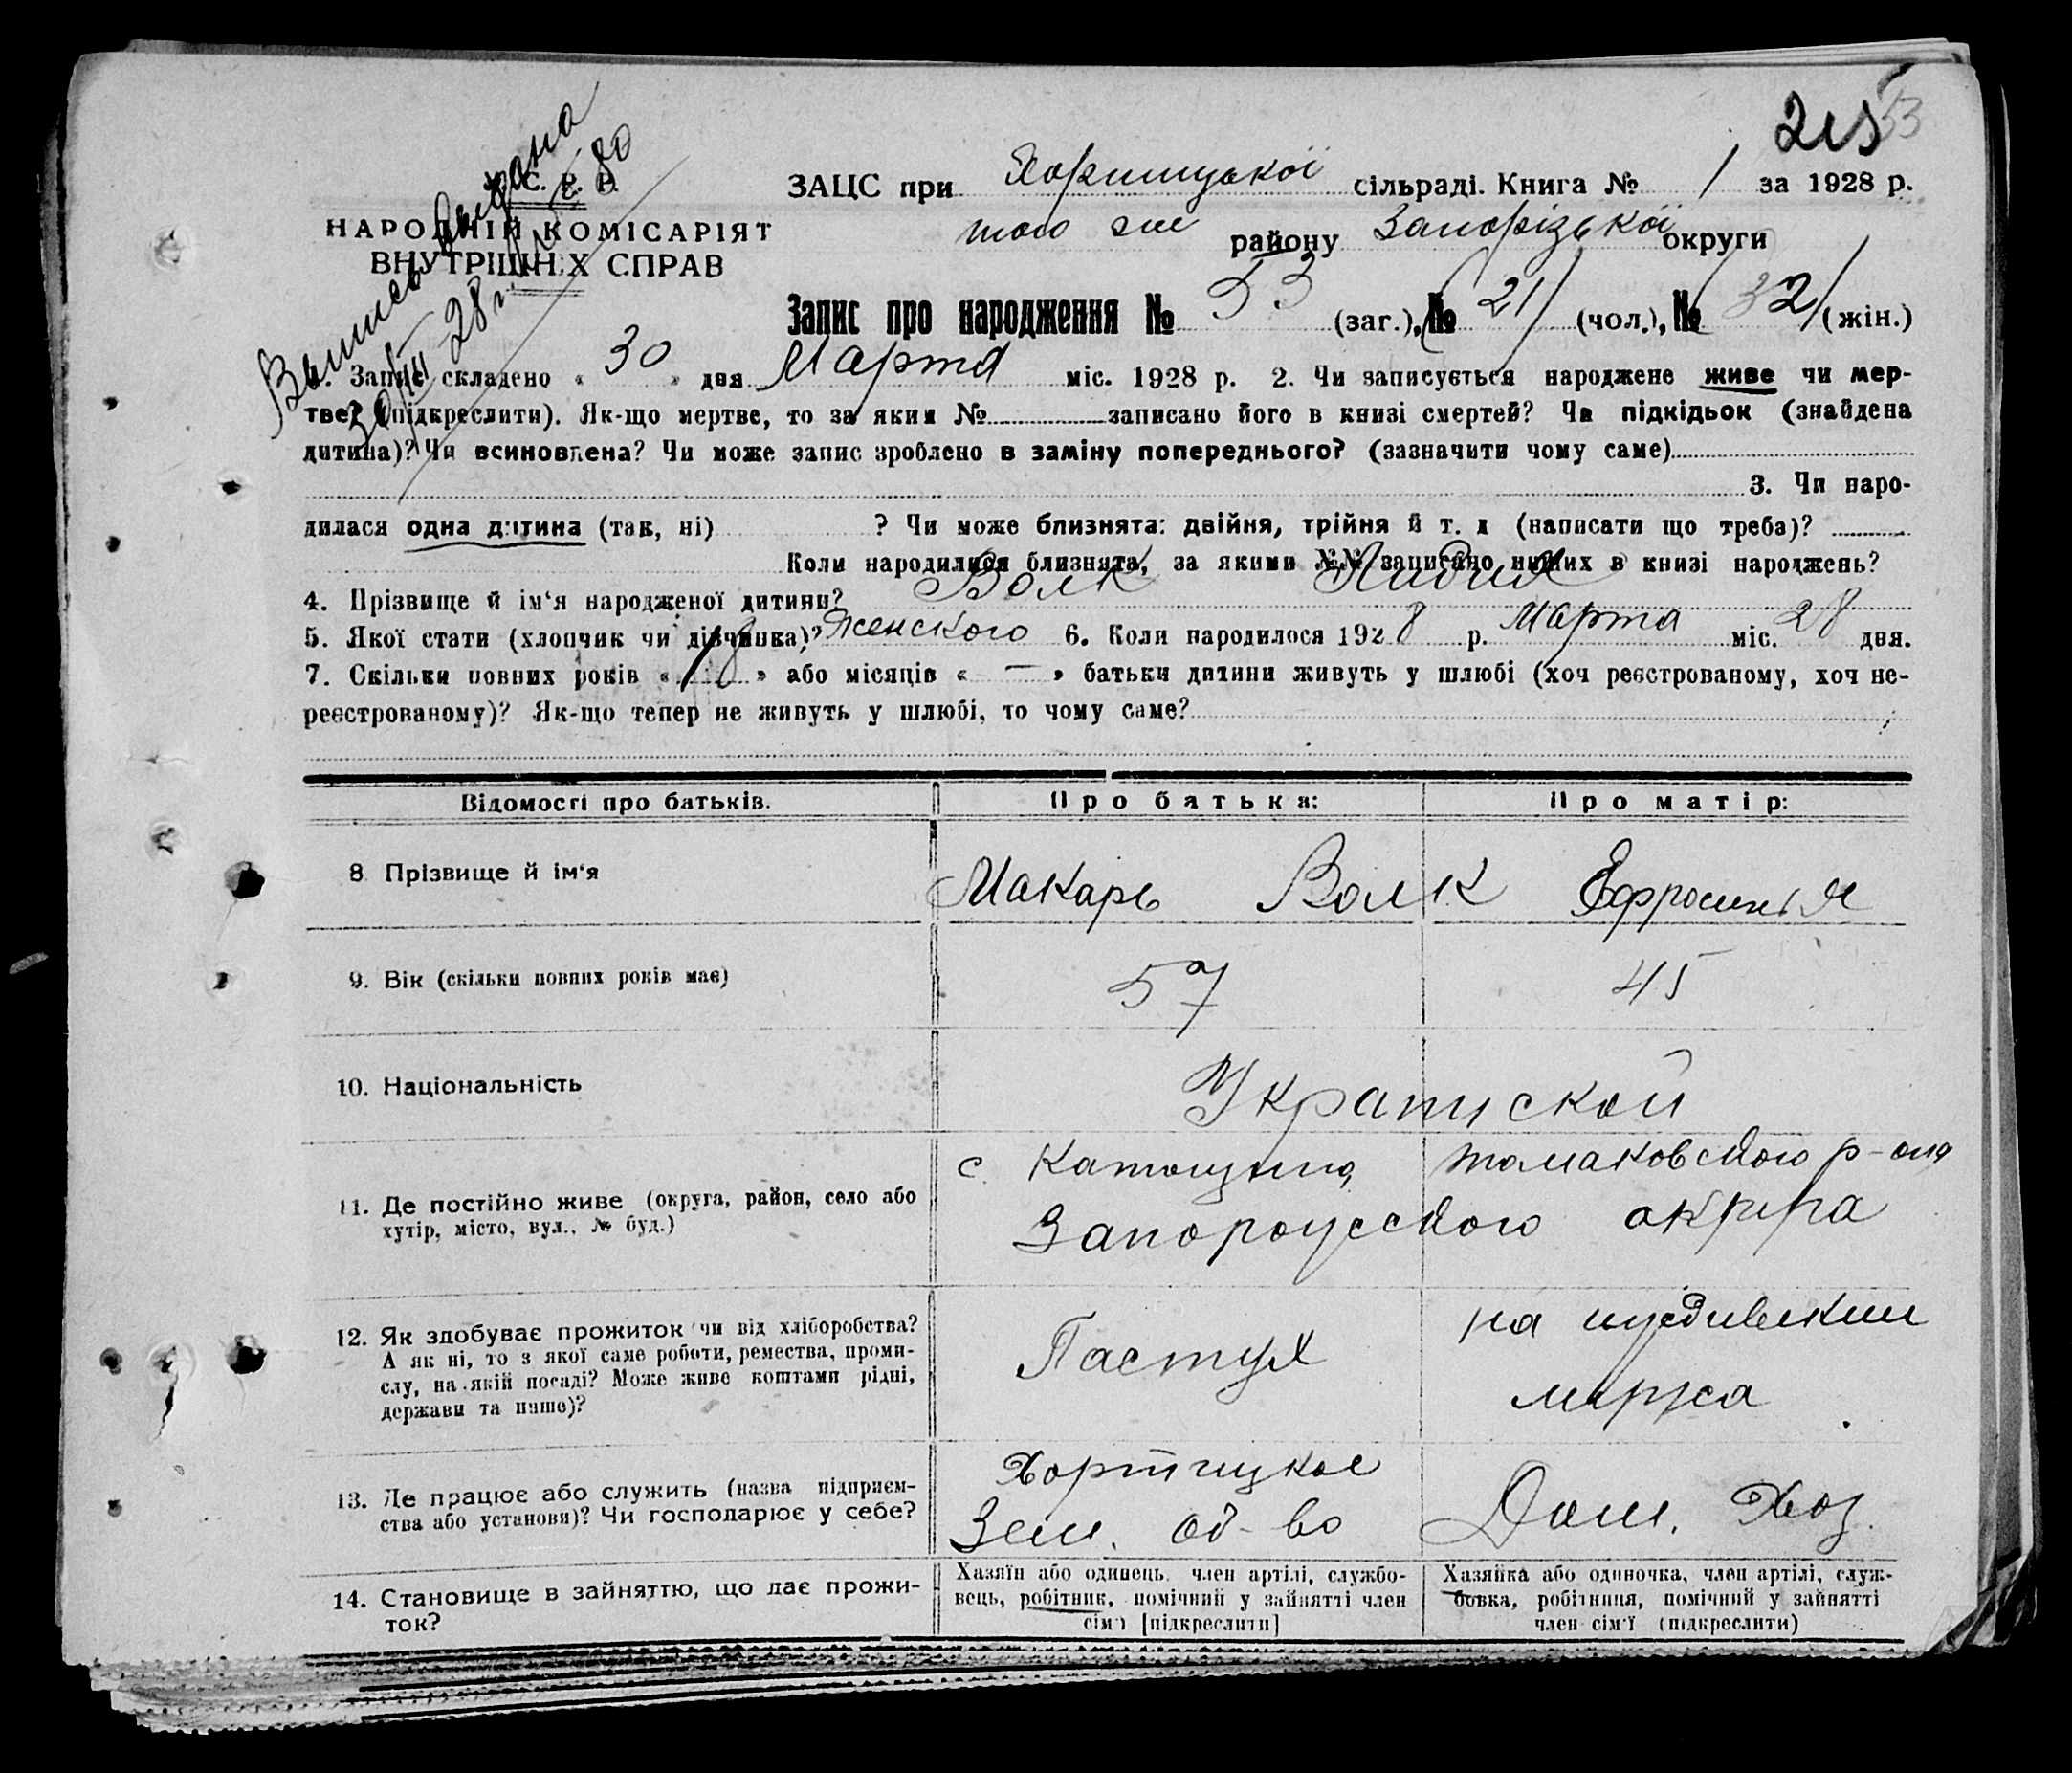 215 53
Выписка выдана
30/III 28 г. № 80
У. С. Р. Р.
НАРОДНІЙ КОМІСАРІЯТ
ВНУТРІШНІХ СПРАВ
ЗАЦС при Хортицької сільраді. Книга № 1 за 1928 р.
того же району Запорізької округи
Запис про народження № 53 (заг.), № 21 (чол.), № 32 (жін.)
1. Запис складено « 30 » дня Марта міс. 1928 р. 2. Чи записується народжене живе чи мер-
тве? (підкреслити). Як-що мертве, то за яким № записано його в книзі смертей? Чи підкідьок (знайдена
дитина)? Чи всиновлена? Чи може запис зроблено в заміну попереднього? (зазначити чому саме)
3. Чи наро-
дилася одна дитина (так, ні) ? Чи може близнята: двійня, трійня й т. д (написати що треба)?
Коли народилися близнята, за якими №№ записано инших в книзі народжень?
4. Прізвище й ім‘я народженої дитини? Волк Лидия
5. Якої стати (хлопчик чи дівчинка)? Женского 6. Коли народилося 1928 р. Марта міс. 28 дня.
7. Скільки повних років « 18 » або місяців « — » батьки дитини живуть у шлюбі (хоч реєстрованому, хоч не-
реєстрованому)? Як-що тепер не живуть у шлюбі, то чому саме?
Відомості про батьків. Про батька: Про матір:
8 Прізвище й ім‘я Макарь Волк Ефросинья
9. Вік (скільки повних років має) 57 45
10. Національність Украинской
11. Де постійно живе (округа, район, село або
хутір, місто, вул., № буд.)
с. томаковского р-она
Запорожского округа
12. Як здобуває прожиток чи від хліборобства?
А як ні, то з якої саме роботи, ремества, проми-
слу, на якій посаді? Може живе коштами рідні,
держави та инше)?
Пастух
на иждивении
мужа
13. Де працює або служить (назва підприєм-
ства або установи)? Чи господарює у себе?
Хортицкое
Зем. об-во
Дом. Хоз.
14. Становище в зайняттю, що дає прожи-
ток?
Хазяїн або одинець член артілі, службо-
вець, робітник, помічний у зайнятті член
сім‘ї [підкреслити]
Хазяйка або одиночка, член артілі, служ-
бовка, робітниця, помічний у зайнятті
член сім‘ї (підкреслити)